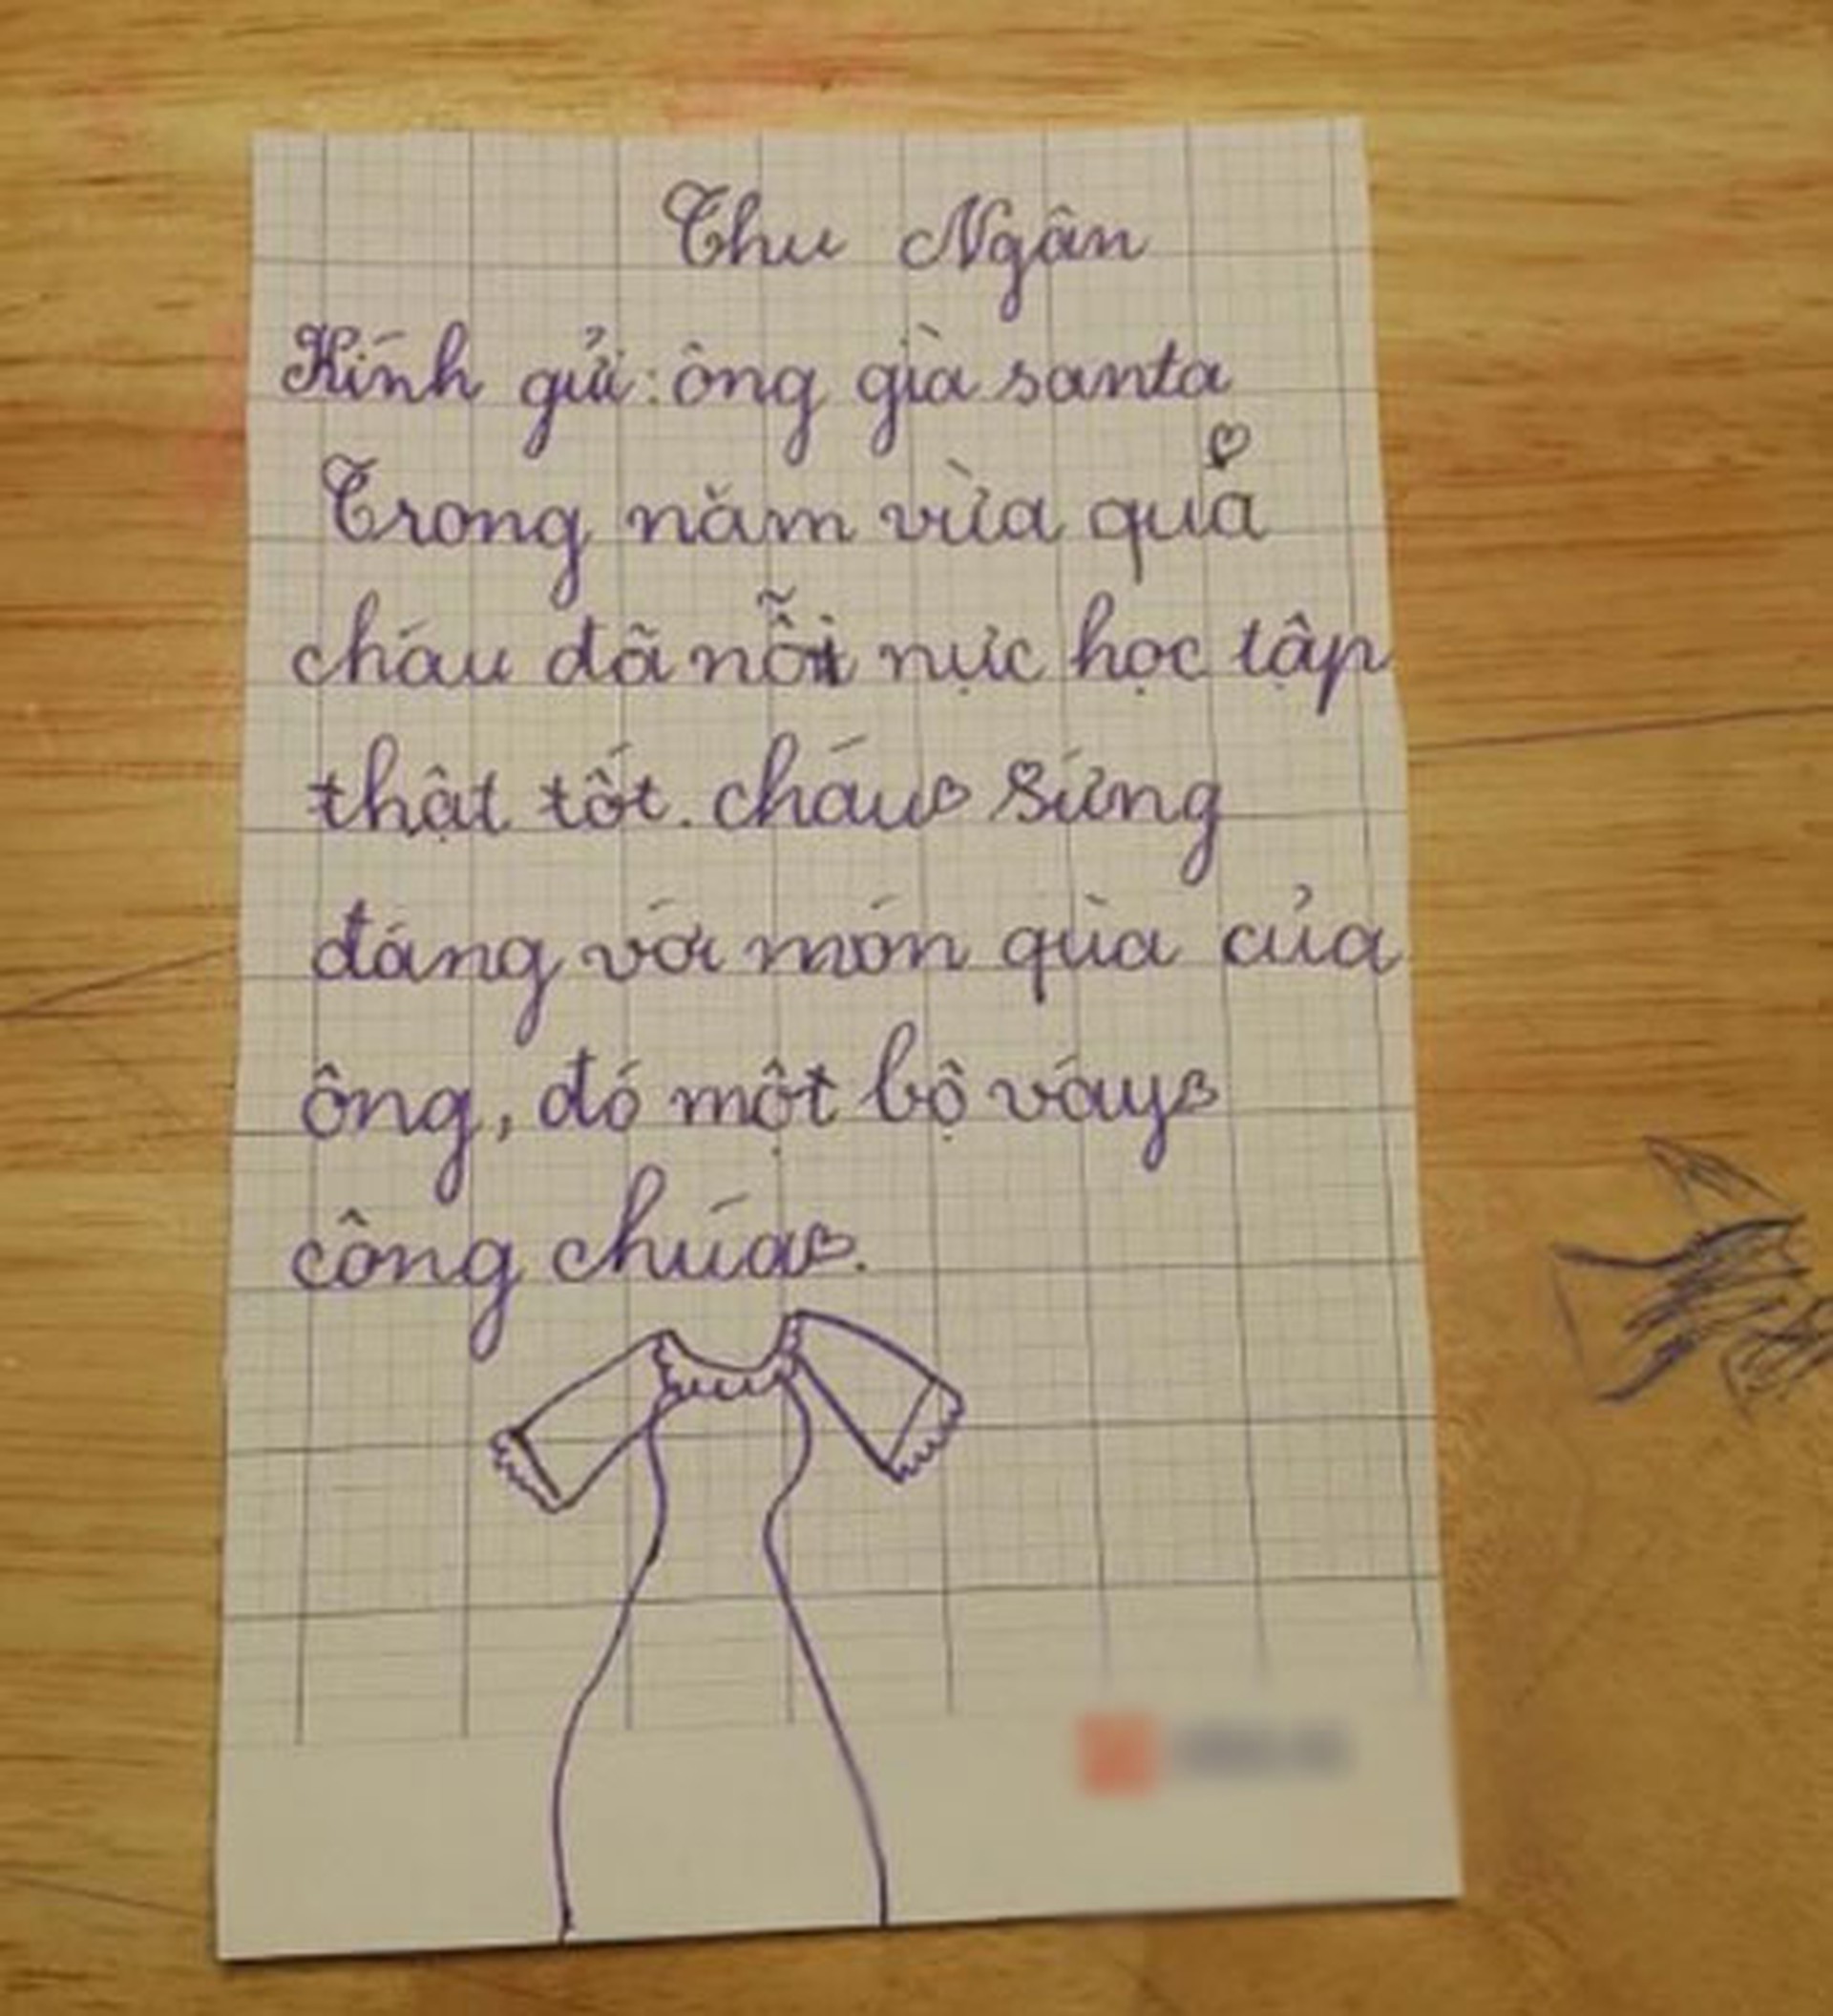 Thu Ngân
Kính gửi: ông già santa
Trong năm vừa qua
cháu đã nỗi nực học tập
thật tốt. cháu sứng
đáng với món qùa của
ông, đó một bộ váy
công chúa.